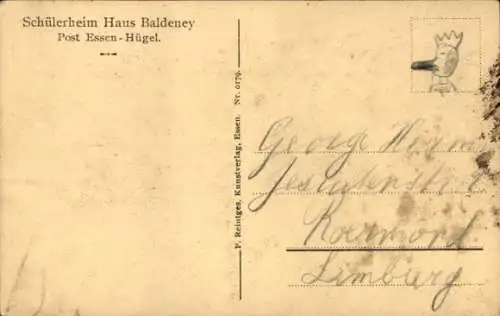 Schülerheim Haus Baldeney
Post Essen-Hügel.
P. Reintges, Kunstverlag, Essen. Nr. 0179.
George
Roermond
Limburg